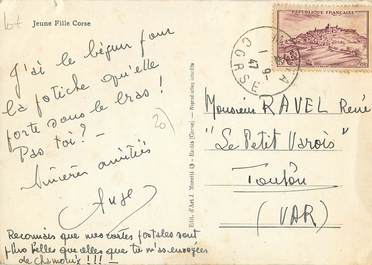 lot
Jeune Fille Corse
J'ai le béguin pour
la potiche qu'elle
porte sous le bras !
Pas toi ? -
Sincères amitiés
Reconnais que mes cartes postales sont
plus belles que celles que tu m'as envoyées
de Chamonix !!! -
20
Edit. d'Art J. Moretti - Bastia (Corse) - Reproduction interdite
REPUBLIQUE FRANÇAISE
1-9
47
CORSE
Monsieur RAVEL René
"Le Petit Varois"
Toulon
(VAR)